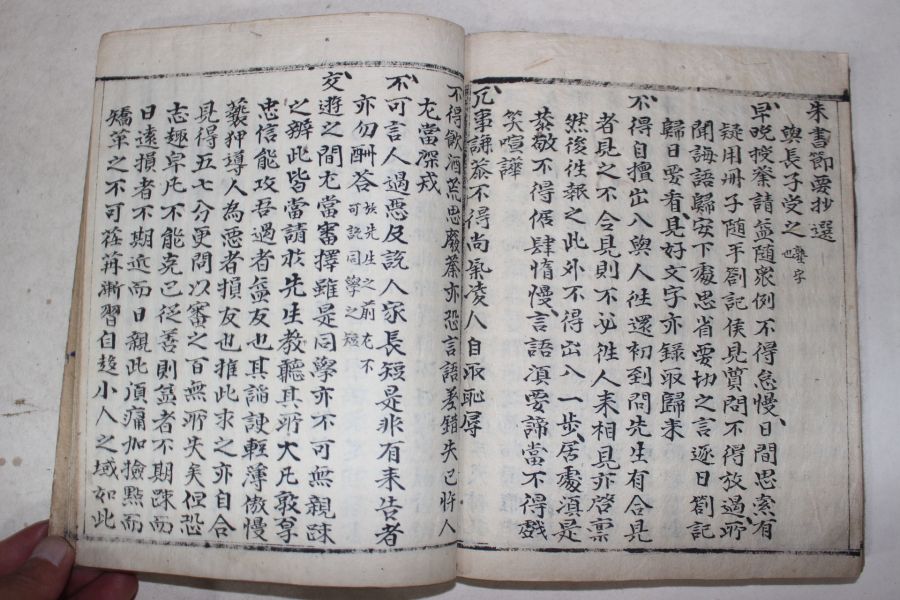 朱書節要抄選
與長子受之 㙜字也
早晩授業請益隨衆例不得怠慢日間思索有
疑用册子隨手劄記侯見質問不得放過所
聞誨語歸安下處思省要切之言逐日劄記
歸日要看見好文字亦錄取歸来
不得自擅出入與人徃還初到問先生有合見
者見之不合見則不必徃人来相見亦啓禀
然後徃報之此外不得出入一步居處湏是
恭敬不得倨肆惰慢言語湏要諦當不得戲
笑喧譁
凡事謙恭不得尚氣凌人自取耻辱
不得飮酒荒思廢業亦恐言語差錯失己忤人
尤當深戒
不可言人過惡及說人家長短是非有来告者
亦勿酬答 於先生之前尤不可說同學之短
交遊之間尤當審擇雖是同學亦不可無親踈
之辨此皆當請於先生教聽其所大凡敦享
忠信能攻吾過者益友也其謟諛輕薄傲慢
褻狎導人為惡者損友也推此求之亦自合
見得五七分更問以審之百無所失矣但恐
志趣卑凡不能克己從善則益者不期踈而
日遠損者不期近而日親此湏痛加撿點而
矯革之不可荏苒漸習自趍小人之域如此